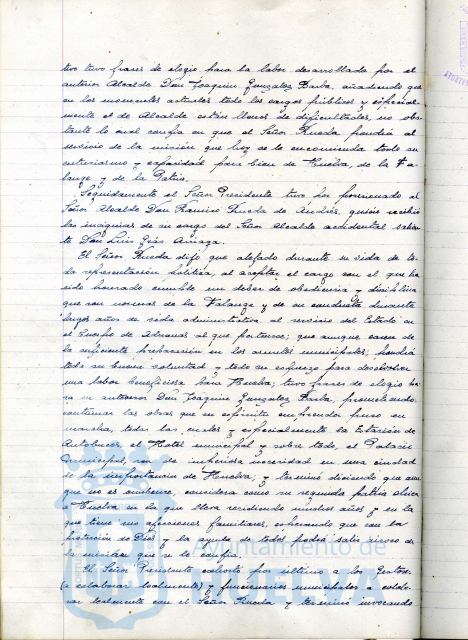 tivo tuvo frases de elogio para la labor desarrollada por el
anterior Alcalde Don Joaquin Gonzalez Barba, añadiendo que
en los momentos actuales todo los cargos públicos y especial-
mente el de Alcalde estan llenos de dificultades, no obs-
tante lo cual confia en que el Señor Rueda pondrá al
servicio de la misión que hoy se le encomienda todo su
entusiasmo y capacidad para bien de Huelva, de la Fa-
lange y de la Patria.
Seguidamente el Señor Presidente tuvo por posesionado al
Señor Alcalde Don Ramiro Rueda de Andrés, quien recibió
las insignias de su cargo del Señor Alcalde accidental
Don Luis Arriaga.
El Señor Rueda dijo que alejado durante su vida de to-
da representación politica, al aceptar el cargo con el que ha
sido honrado cumple un deber de obediencia y disciplina
que son normas de la Falange y de su conducta durante
largos años de vida administrativa al servicio del Estado en
el Cuerpo de Aduanas al que pertenece; que aunque carece de
la suficiente preparación en los asuntos municipales, pondrá
toda su buena voluntad y todo su esfuerzo para desarrollar
una labor beneficiosa para Huelva; tuvo frases de elogio pa-
ra su antecesor Don Joaquin Gonzalez Barba, prometiendo
continuar las obras que su espíritu emprendedor puso en
marcha, todas las cuales y especialmente la Estación de
Autobuses, el Hotel municipal y sobre todo, el Palacio
municipal, son de imperiosa necesidad en una ciudad
de la importancia de Huelva, y terminó diciendo que aun-
que no es onubense, considera como su segunda patria chica
a Huelva en la que lleva residiendo muchos años y en la
que tiene sus afecciones familiares, esperando que con la
protección de Dios y la ayuda de todos podrá salir airoso de
la misión que se le confia.
El Señor Presidente exhortó por último a los Gestores
(a colaborar lealmente) y funcionarios municipales a colabo-
rar lealmente con el Señor Rueda y terminó invocando
Ayuntamiento de
HUELVA